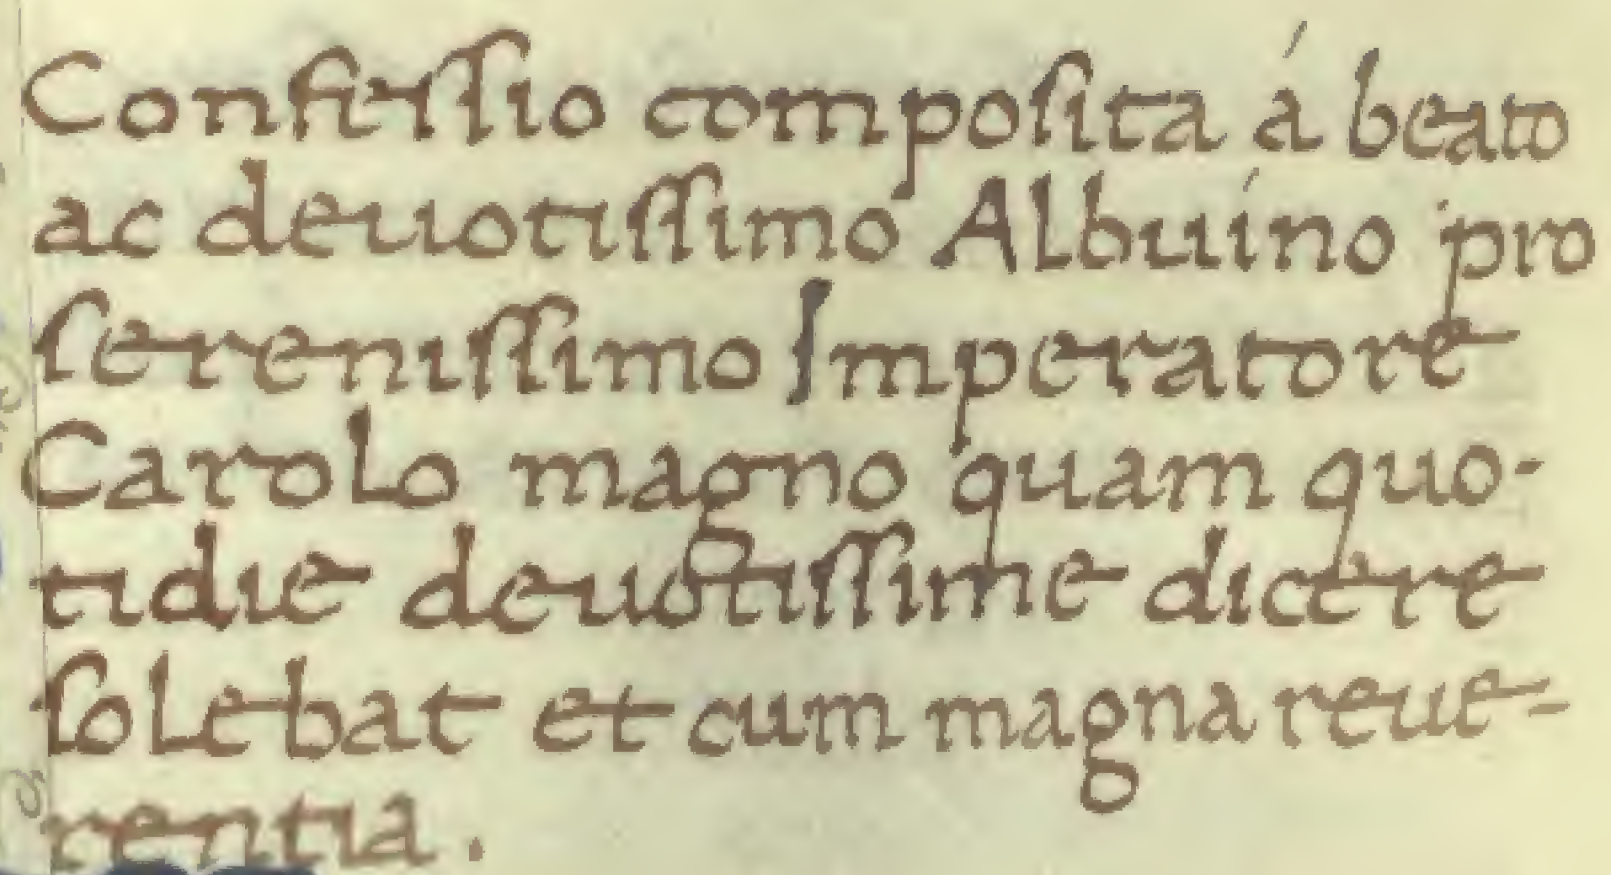 Confeſſio compoſita á beato
ac deuotiſſimo Albuíno pro
ſereniſſimo Imperatore
Carolo magno quam quo-
tidie deuotiſſime dicere
ſolebat et cum magna reue-
rentia.